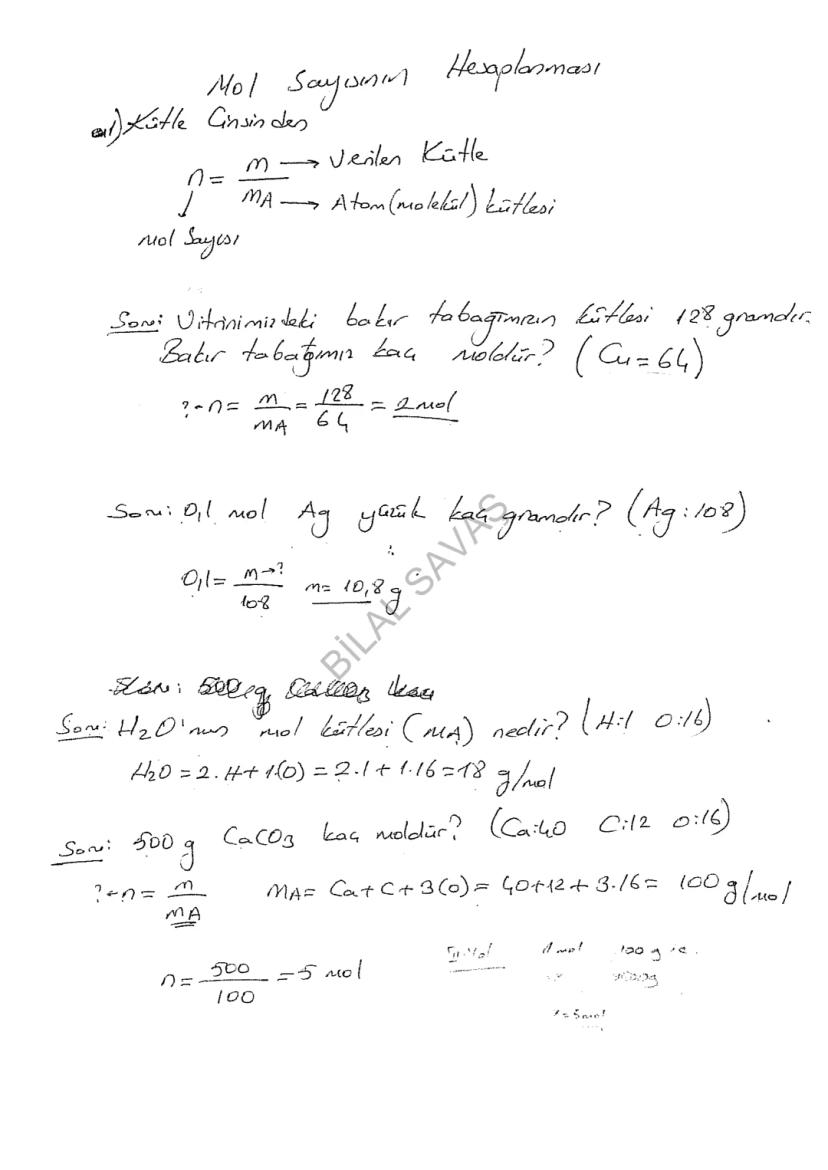 Mol Sayısının Hesaplanması
1) Kütle Cinsinden
n = m → Verilen Kütle
MA → Atom (molekül) kütlesi
mol Sayısı
Soru: Vitrinimizdeki bakır tabağımızın kütlesi 128 gramdır.
Bakır tabağımız kaç moldür? (Cu=64)
?←n = m/MA = 128/64 = 2 mol
Soru: 0,1 mol Ag yüzük kaç gramdır? (Ag:108)
0,1 = m→?/108 m = 10,8 g
BİLAL SAVAŞ
Soru: H2O'nun mol kütlesi (MA) nedir? (H:1 O:16)
H2O = 2.H + 1(O) = 2.1 + 1.16 = 18 g/mol
Soru: 500 g CaCO3 kaç moldür? (Ca:40 C:12 O:16)
?←n = m/MA MA = Ca + C + 3(O) = 40+12+3.16 = 100 g/mol
n = 500/100 = 5 mol
II. Yol 1 mol 100 g ise
x = 5 mol